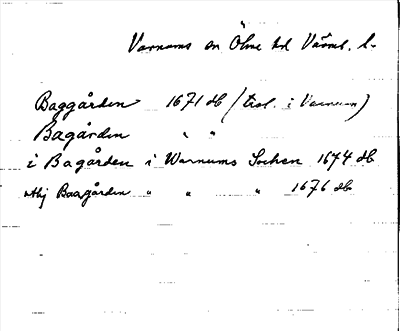 Varnums sn Ölme hd Värml. l.
Baggården 1671 db (trol. i Varnum)
Bagården " "
i Bagården i Warnums Sochen 1674 db
Baagården " " " 1676 db